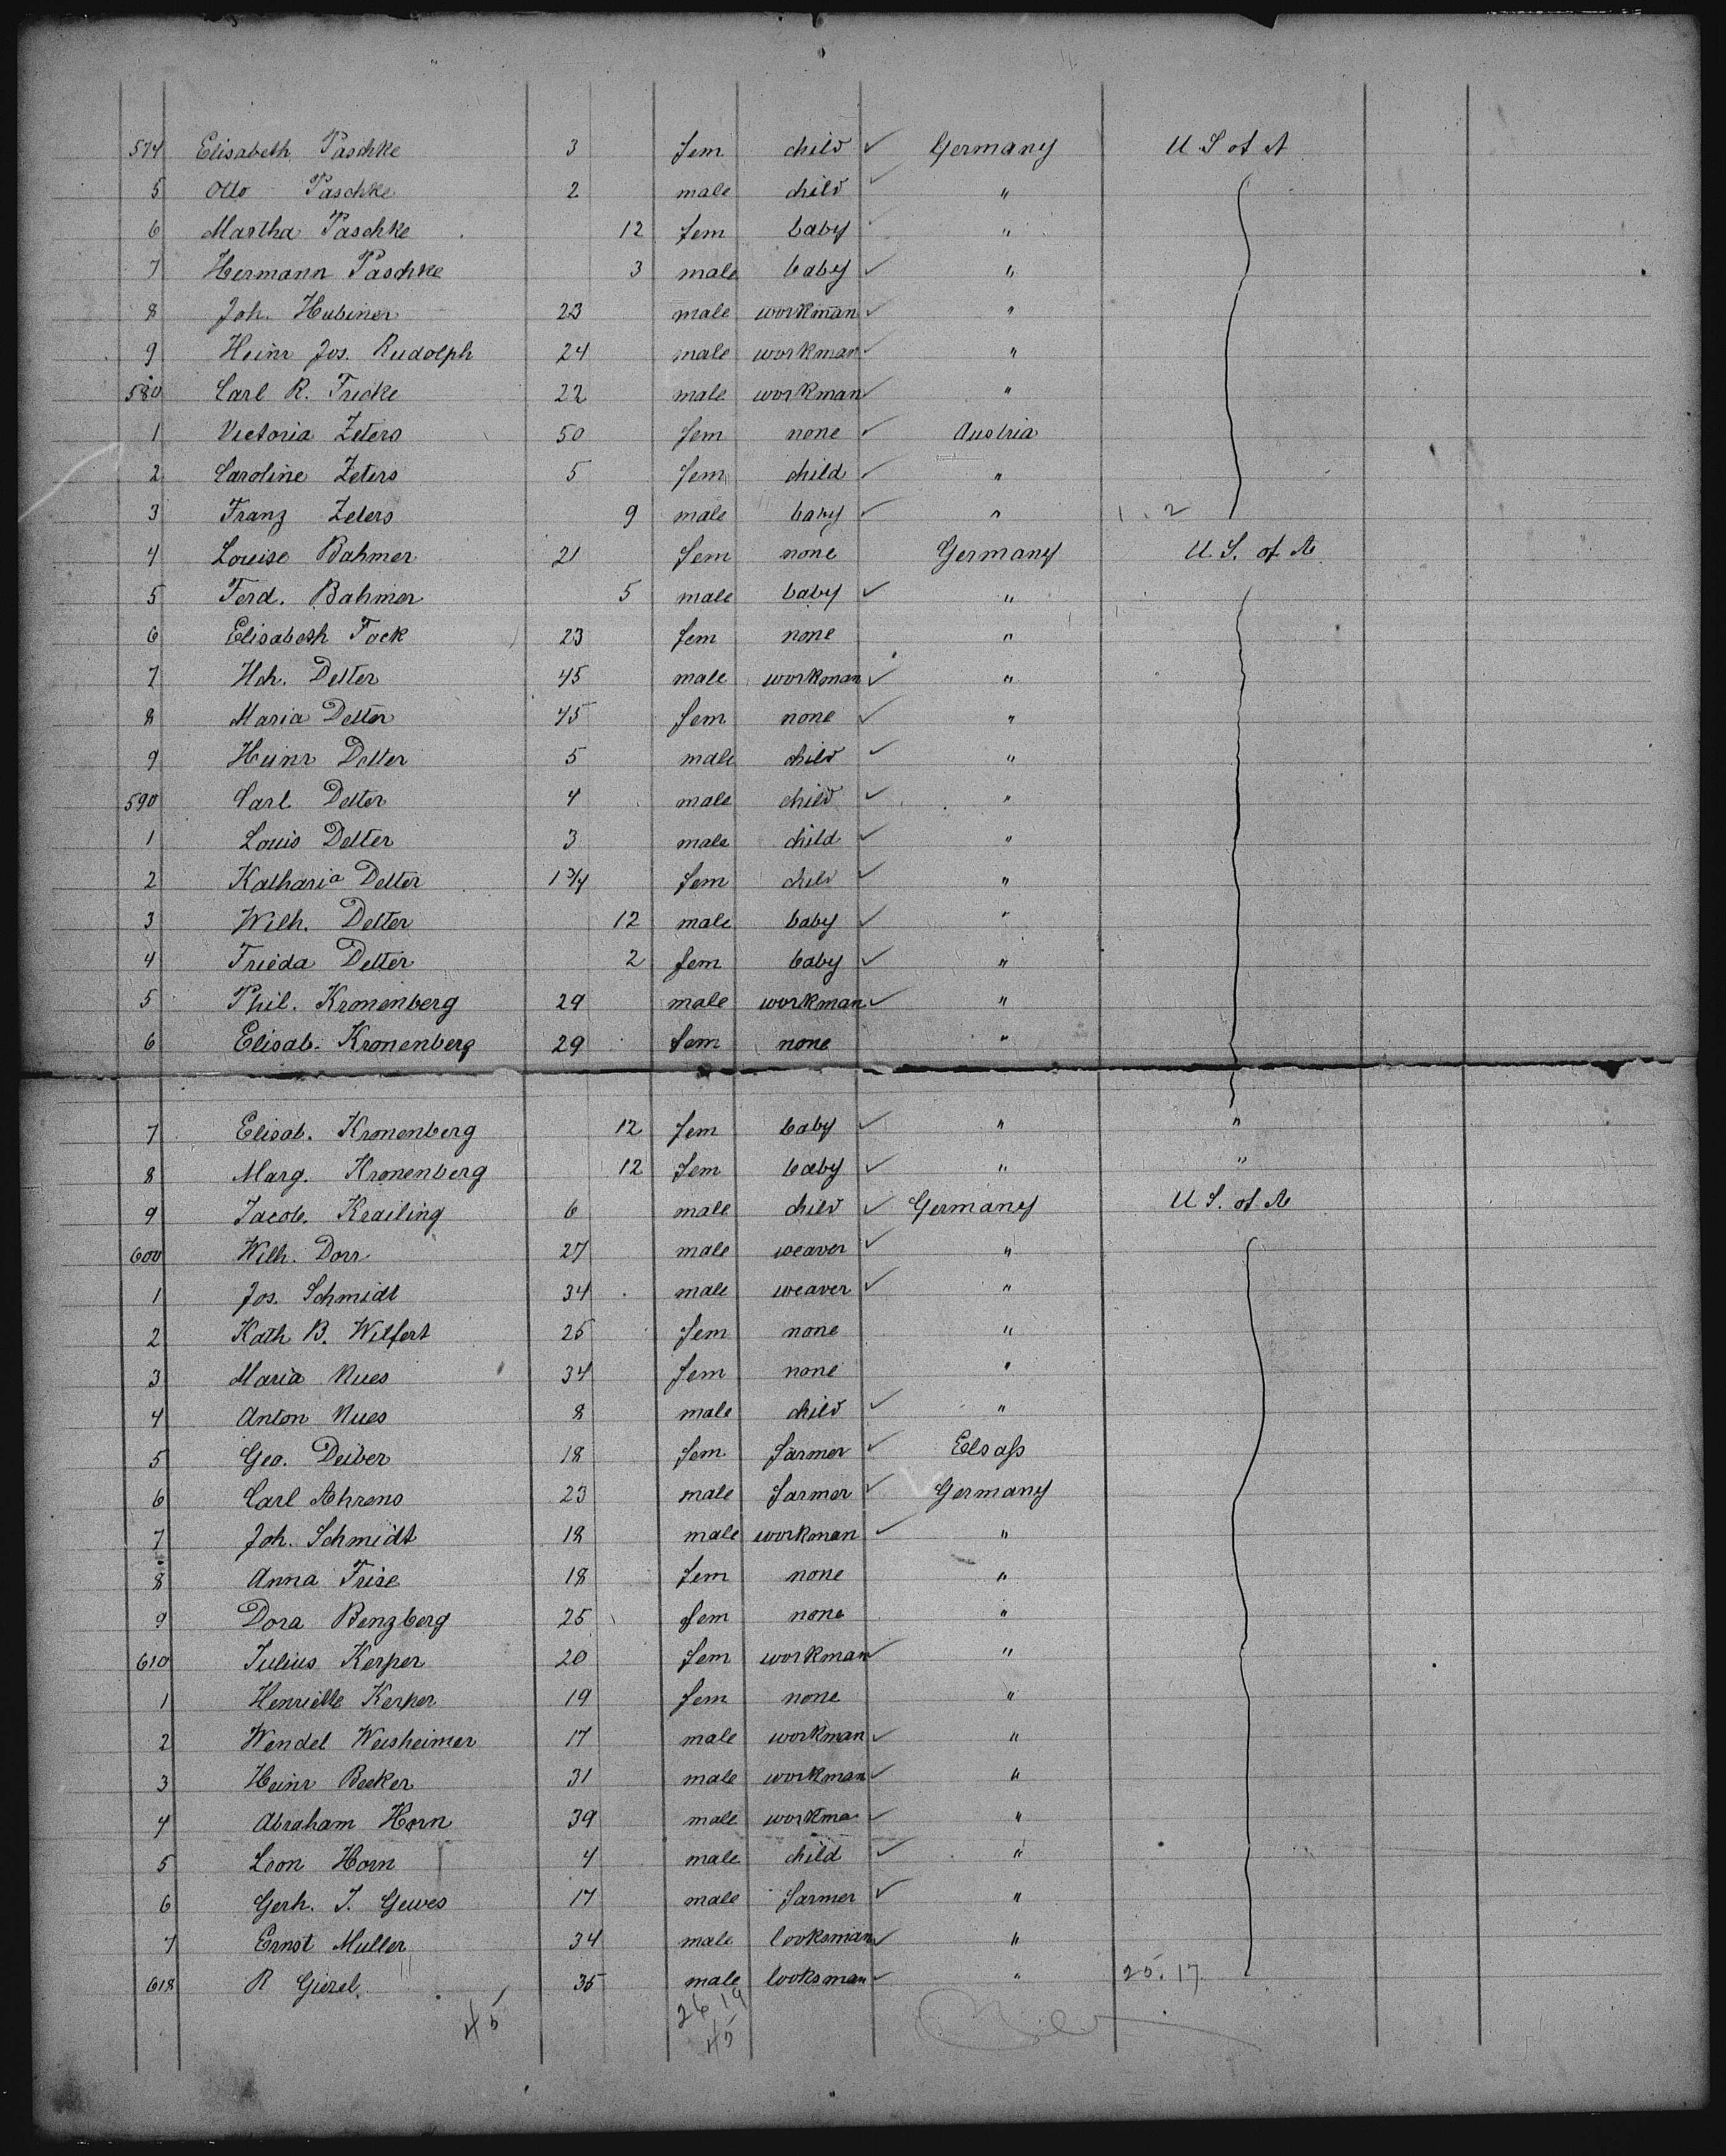 574 Elisabeth Paschke 3 fem child ✓ Germany U S of A
5 Otto Paschke 2 male child ✓ "
6 Martha Paschke 12 fem baby "
7 Hermann Paschke 3 male baby ✓ "
8 Joh. Hubiner 23 male workman ✓ "
9 Heinr Jos. Rudolph 24 male workman ✓ "
580 Carl R. Fricke 22 male workman ✓ "
1 Victoria Zeters 50 fem none ✓ Austria
2 Caroline Zeters 5 fem child ✓ "
3 Franz Zeters 9 male baby ✓ " 1.2
4 Louise Bahmer 21 fem none Germany U. S. of A
5 Ferd. Bahmer 5 male baby ✓ "
6 Elisabeth Fock 23 fem none "
7 Hch. Detter 45 male workman ✓ "
8 Maria Detter 45 fem none ✓ "
9 Heinr Detter 5 male child ✓ "
590 Carl Detter 4 male child ✓ "
1 Louis Detter 3 male child ✓ "
2 Katharia Detter 1 3/4 fem child ✓ "
3 Wilh. Detter 12 male baby ✓ "
4 Frieda Detter 2 fem baby ✓ "
5 Phil. Kronenberg 29 male workman ✓ "
6 Elisab. Kronenberg 29 fem none "
7 Elisab. Kronenberg 12 fem baby ✓ " "
8 Marg. Kronenberg 12 fem baby ✓ " "
9 Jacob. Krailing 6 male child ✓ Germany U S. of A
600 Wilh. Dorr 27 male weaver ✓ "
1 Jos. Schmidt 34 male weaver ✓ "
2 Kath B. Wilfert 25 fem none "
3 Maria Nues 34 fem none "
4 Anton Nues 8 male child ✓ "
5 Geo. Deiber 18 fem farmer ✓ Elsaß
6 Carl Ahrens 23 male farmer ✓ Germany
7 Joh. Schmidt 18 male workman ✓ "
8 Anna Frise 18 fem none "
9 Dora Benzberg 25 fem none "
610 Julius Kerper 20 fem workman ✓ "
1 Henriette Kerper 19 fem none "
2 Wendel Weisheimer 17 male workman ✓ "
3 Heinr Becker 31 male workman ✓ "
4 Abraham Horn 39 male workma ✓ "
5 Leon Horn 4 male child ✓ "
6 Gerh. J. Gewes 17 male farmer ✓ "
7 Ernst Muller 34 male looksman ✓ "
618 R Giezel. 35 male looksman ✓ " 25.17
45 26 19
45